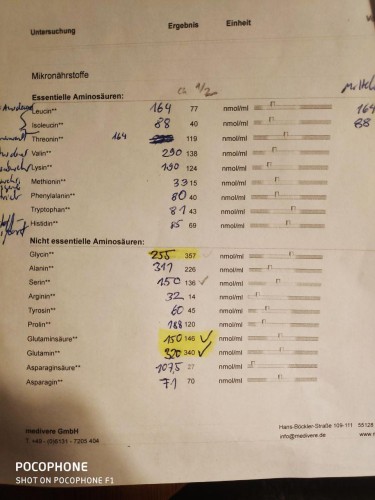 Untersuchung Ergebnis Einheit
Mikronährstoffe
Essentielle Aminosäuren:
Leucin** 164 77 nmol/ml 164
Isoleucin** 88 40 nmol/ml 88
Threonin** 164 119 nmol/ml
Valin** 290 138 nmol/ml
Lysin** 190 124 nmol/ml
Methionin** 33 15 nmol/ml
Phenylalanin** 80 40 nmol/ml
Tryptophan** 81 43 nmol/ml
Histidin** 85 69 nmol/ml
Nicht essentielle Aminosäuren:
Glycin** 255 357 nmol/ml
Alanin** 317 226 nmol/ml
Serin** 150 136 ✓ nmol/ml
Arginin** 32 14 nmol/ml
Tyrosin** 60 45 nmol/ml
Prolin** 188 120 nmol/ml
Glutaminsäure** 150 146 ✓ nmol/ml
Glutamin** 320 340 ✓ nmol/ml
Asparaginsäure** 107,5 27 nmol/ml
Asparagin** 71 70 nmol/ml
medivere GmbH Hans-Böckler-Straße 109-111 55128
T +49 - (0)6131 - 7205 404 info@medivere.de
POCOPHONE
SHOT ON POCOPHONE F1